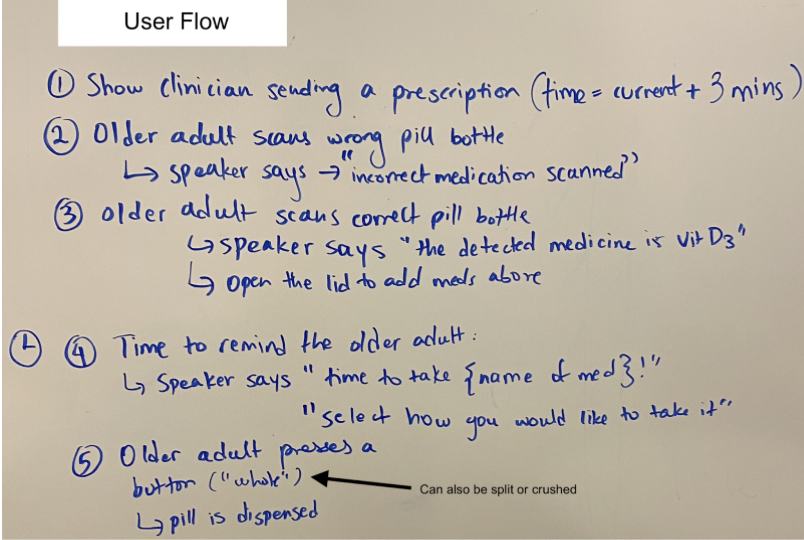 User Flow
① Show clinician sending a prescription (time = current + 3 mins)
② Older adult scans wrong pill bottle
↳ speaker says → "incorrect medication scanned"
③ older adult scans correct pill bottle
↳ speaker says "the detected medicine is Vit D3"
↳ open the lid to add meds above
④ Time to remind the older adult:
↳ Speaker says "time to take {name of med}!"
"select how you would like to take it"
⑤ Older adult presses a
button ("whole")
Can also be split or crushed
↳ pill is dispensed